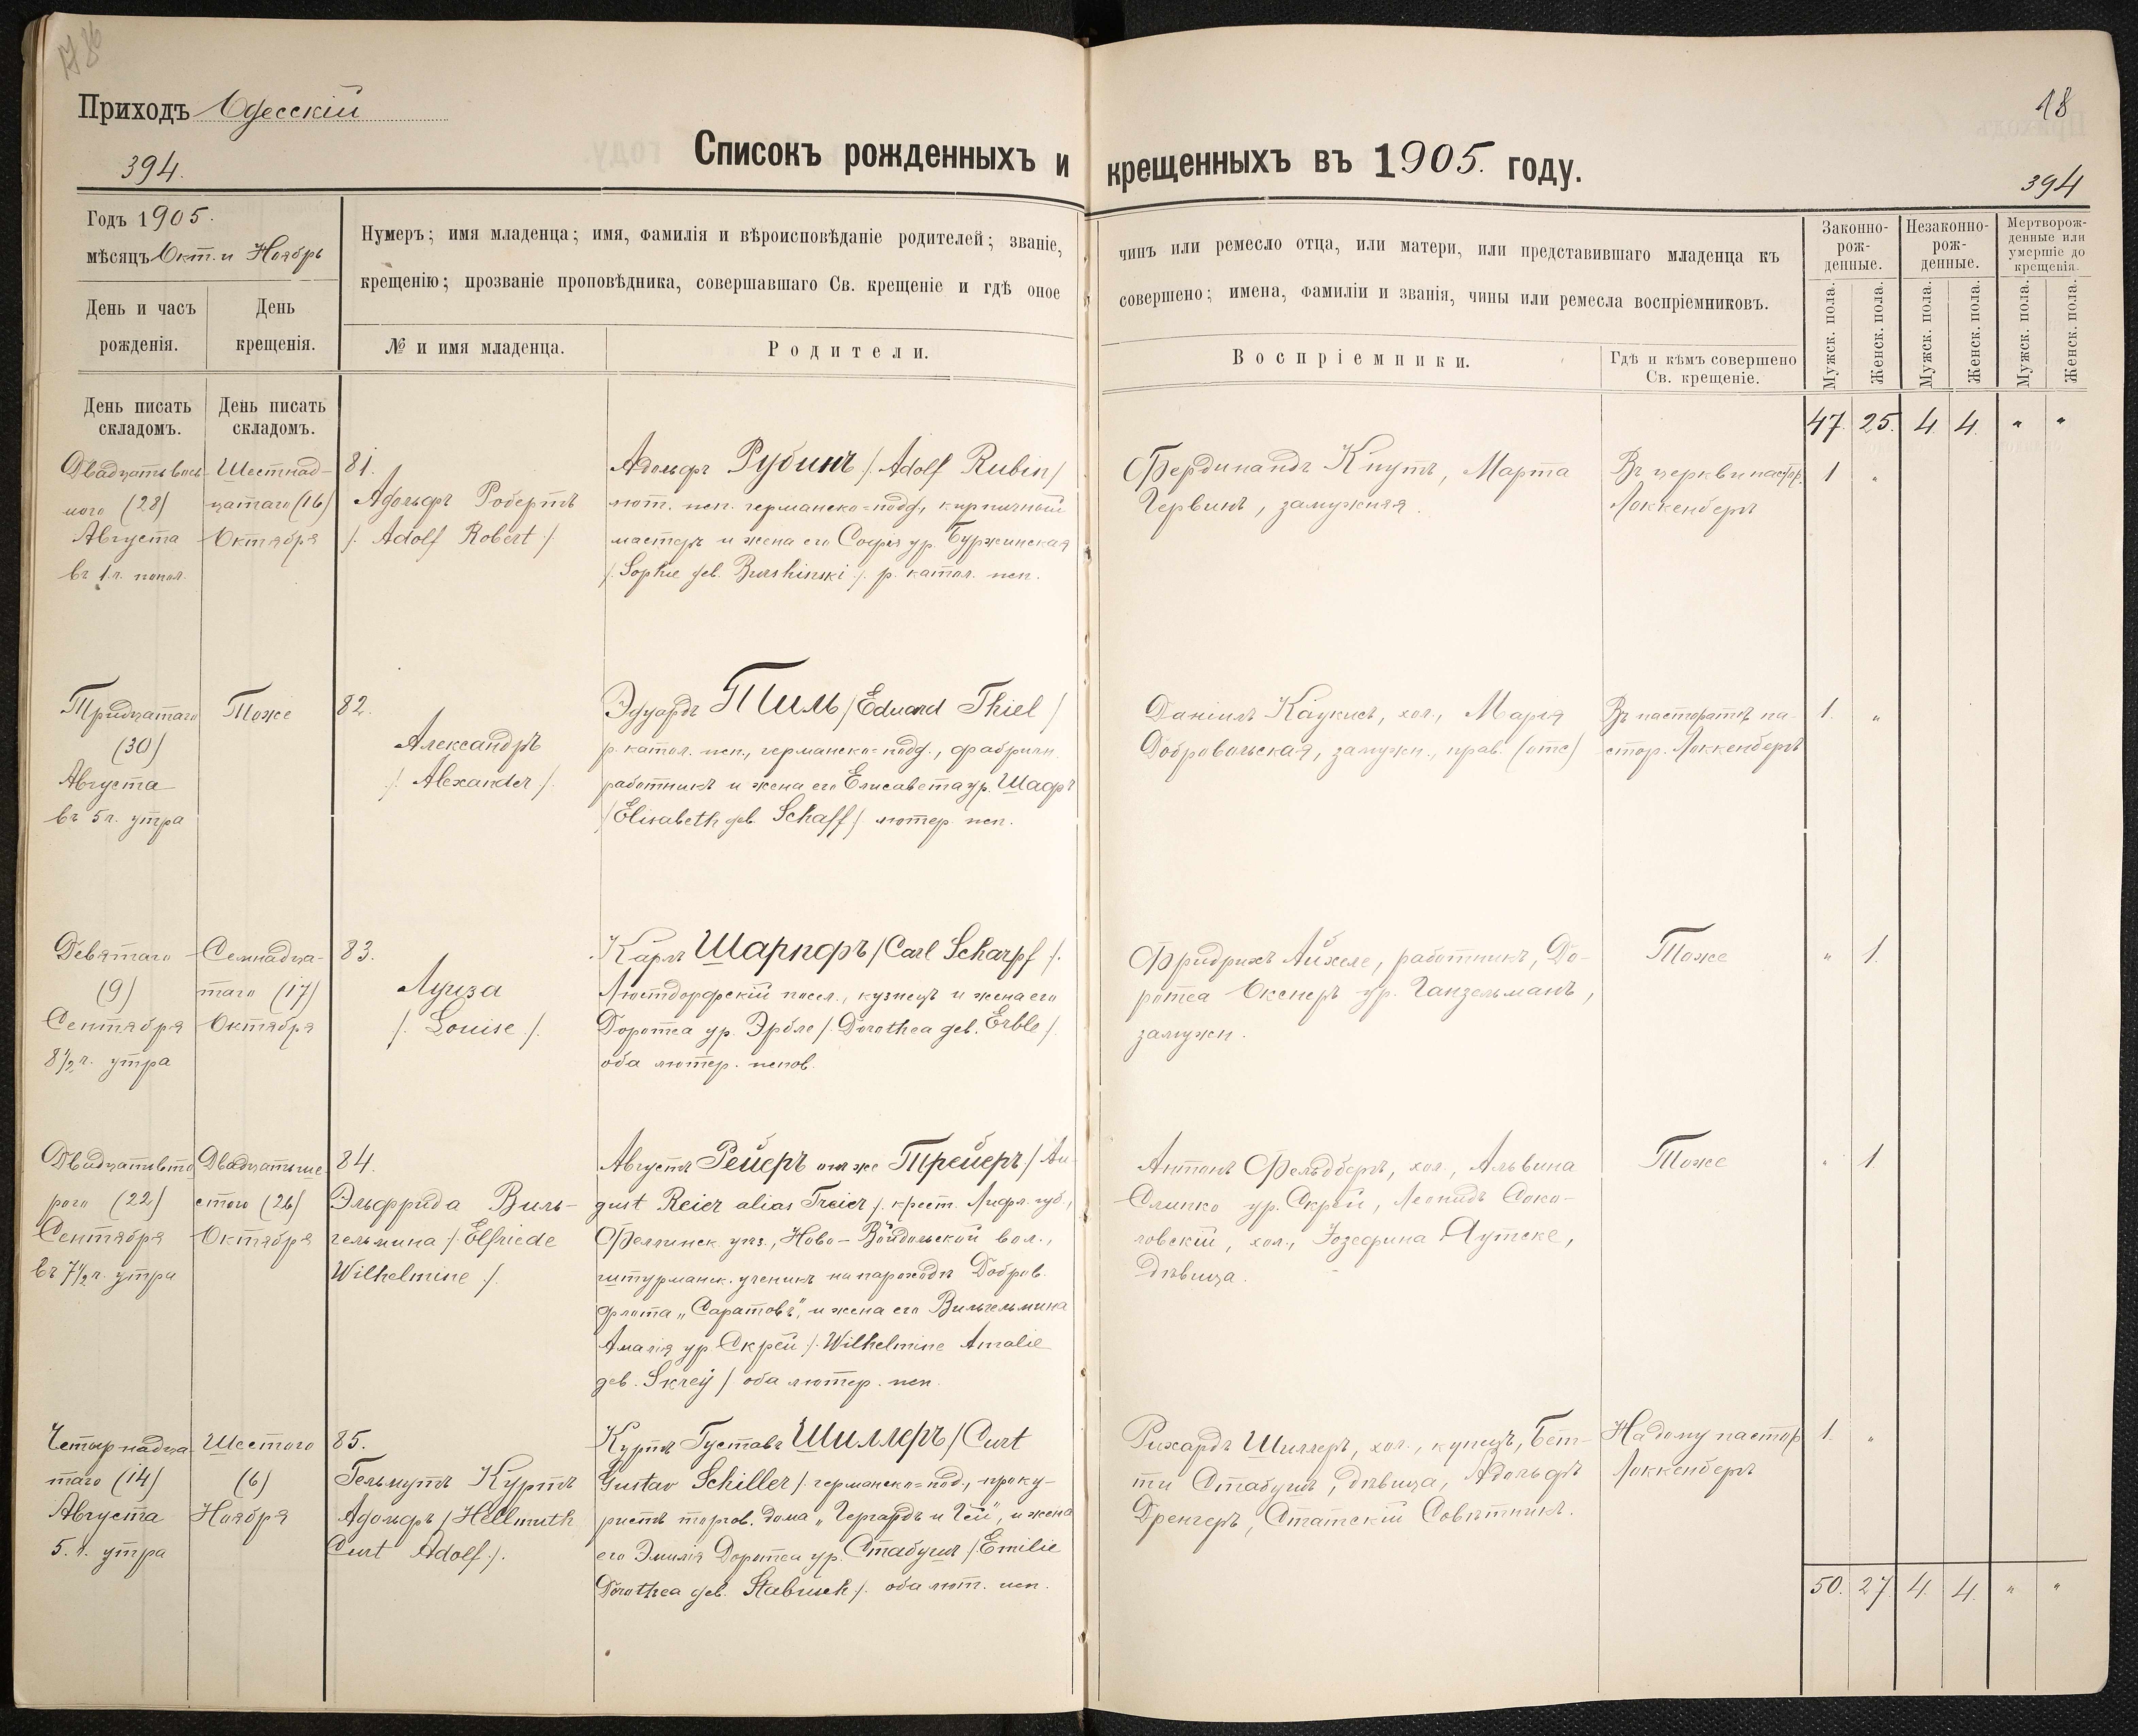 178
Приходъ Одесскій
18
394.
Списокъ рожденныхъ и крещенныхъ въ 1905. году.
394
Годъ 1905.
мѣсяцъ Окт. и Ноябрь
Нумеръ; имя младенца; имя, фамилія и вѣроисповѣданіе родителей; званіе,
чинъ или ремесло отца, или матери, или представившаго младенца къ
крещенію; прозваніе проповѣдника, совершавшаго Св. крещеніе и гдѣ оное
совершено; имена, фамиліи и званія, чины или ремесла воспріемниковъ.
Законно-
рож-
денные.
Незаконно-
рож-
денные.
Мертворож-
денные или
умершіе до
крещенія.
День и часъ
рожденія.
День
крещенія.
№ и имя младенца.
Родители.
Воспріемники.
Гдѣ и кѣмъ совершено
Св. крещеніе.
Мужск. пола.
Женск. пола.
Мужск. пола.
Женск. пола.
Мужск. пола.
Женск. пола.
День писать
складомъ.
День писать
складомъ.
47. 25. 4. 4. " "
Двадцать вось-
мого (28)
Августа
въ 1 ч. попол.
Шестнад-
цатаго (16)
Октября
81.
Адольфъ Робертъ
/. Adolf Robert /
Адольфъ Рубинъ /. Adolf Rubin /
лют. исп. германско=подд., кирпичный
мастеръ и жена его Софія ур. Буржинская
/. Sophie geb. Burshinski /. р. катол. исп.
Фердинандъ Кнутъ, Марта
Червинъ, замужняя.
Въ церкви пастор.
Локкенбергъ
1 "
Тридцатаго
(30)
Августа
въ 5 ч. утра
Тоже
82.
Александръ
/. Alexander /.
Эдуардъ Тиль /Eduard Thiel /
р. катол. исп., германско=подд., фабричн.
работникъ и жена его Елисавета ур. Шафъ
/Elisabeth geb. Schaff/ лютер. исп.
Даніилъ Каукисъ, хол., Марія
Добровольская, замужн., прав. (отс)
Въ пасторатѣ па-
стор. Локкенбергъ
1. "
Девятаго
(9)
Сентября
8 1/2 ч. утра
Семнадца-
таго (17)
Октября
83.
Луиза
/. Louise /.
Карлъ Шарпфъ /Carl Scharpf /.
Люстдорфскій посел., кузнецъ и жена его
Доротеа ур. Эрбле /. Dorothea geb. Erble /.
оба лютер. испов.
Фридрихъ Айхеле, работникъ, До-
ротеа Окснеръ ур. Ганзельманъ,
замужн.
Тоже
" 1.
Двадцать вто-
рого (22)
Сентября
въ 7 1/2 ч. утра
Двадцать ше-
стого (26)
Октября
84.
Эльфрида Виль-
гельмина /. Elfriede
Wilhelmine /.
Августъ Рейеръ онъ же Трейеръ / Au-
gust Reier alias Treier /. крест. Лифл. губ.,
Феллинск. уѣз., Ново-Войдольской вол.,
штурманск. ученикъ на пароходѣ Добров.
флота „Саратовъ", и жена его Вильгельмина
Амалія ур. Скрей /. Wilhelmine Amalie
geb. Skrey / оба лютер. исп.
Антонъ Фельдбергъ, хол., Альвина
Слинко ур. Скрей, Леонидъ Соко-
ловскій, хол., Іозефина Аутске,
дѣвица.
Тоже
" 1
Четырнадца-
таго (14)
Августа
5. ч. утра
Шестого
(6)
Ноября
85.
Гельмутъ Куртъ
Адольфъ /Hellmuth
Curt Adolf /.
Куртъ Густавъ Шиллеръ /Curt
Gustav Schiller /. германско=под., проку-
ристъ торгов. дома „Гергардъ и Гей", и жена
его Эмилія Доротеа ур. Стабушъ /. Emilie
Dorothea geb. Stabusch /. оба лют. исп.
Рихардъ Шиллеръ, хол., купецъ, Бет-
ти Стабушъ, дѣвица, Адольфъ
Дренгеръ, Статскій Совѣтникъ.
На дому пастор.
Локкенбергъ
1. "
50. 27 4. 4. " "